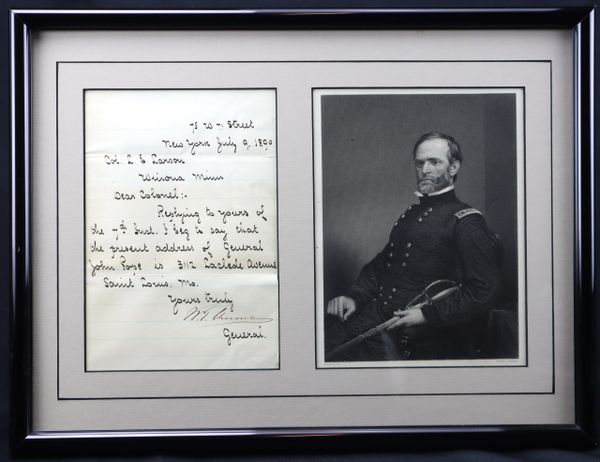 75 W 71 Street
New York July 9, 1890
Col. L. E. Larson
Winona Minn
Dear Colonel:-
Replying to yours of
the 7th Inst. I beg to say, that
the present address of General
John Pope is 3112 Laclede Avenue
Saint Louis, Mo.
Yours truly
W. T. Sherman
General.